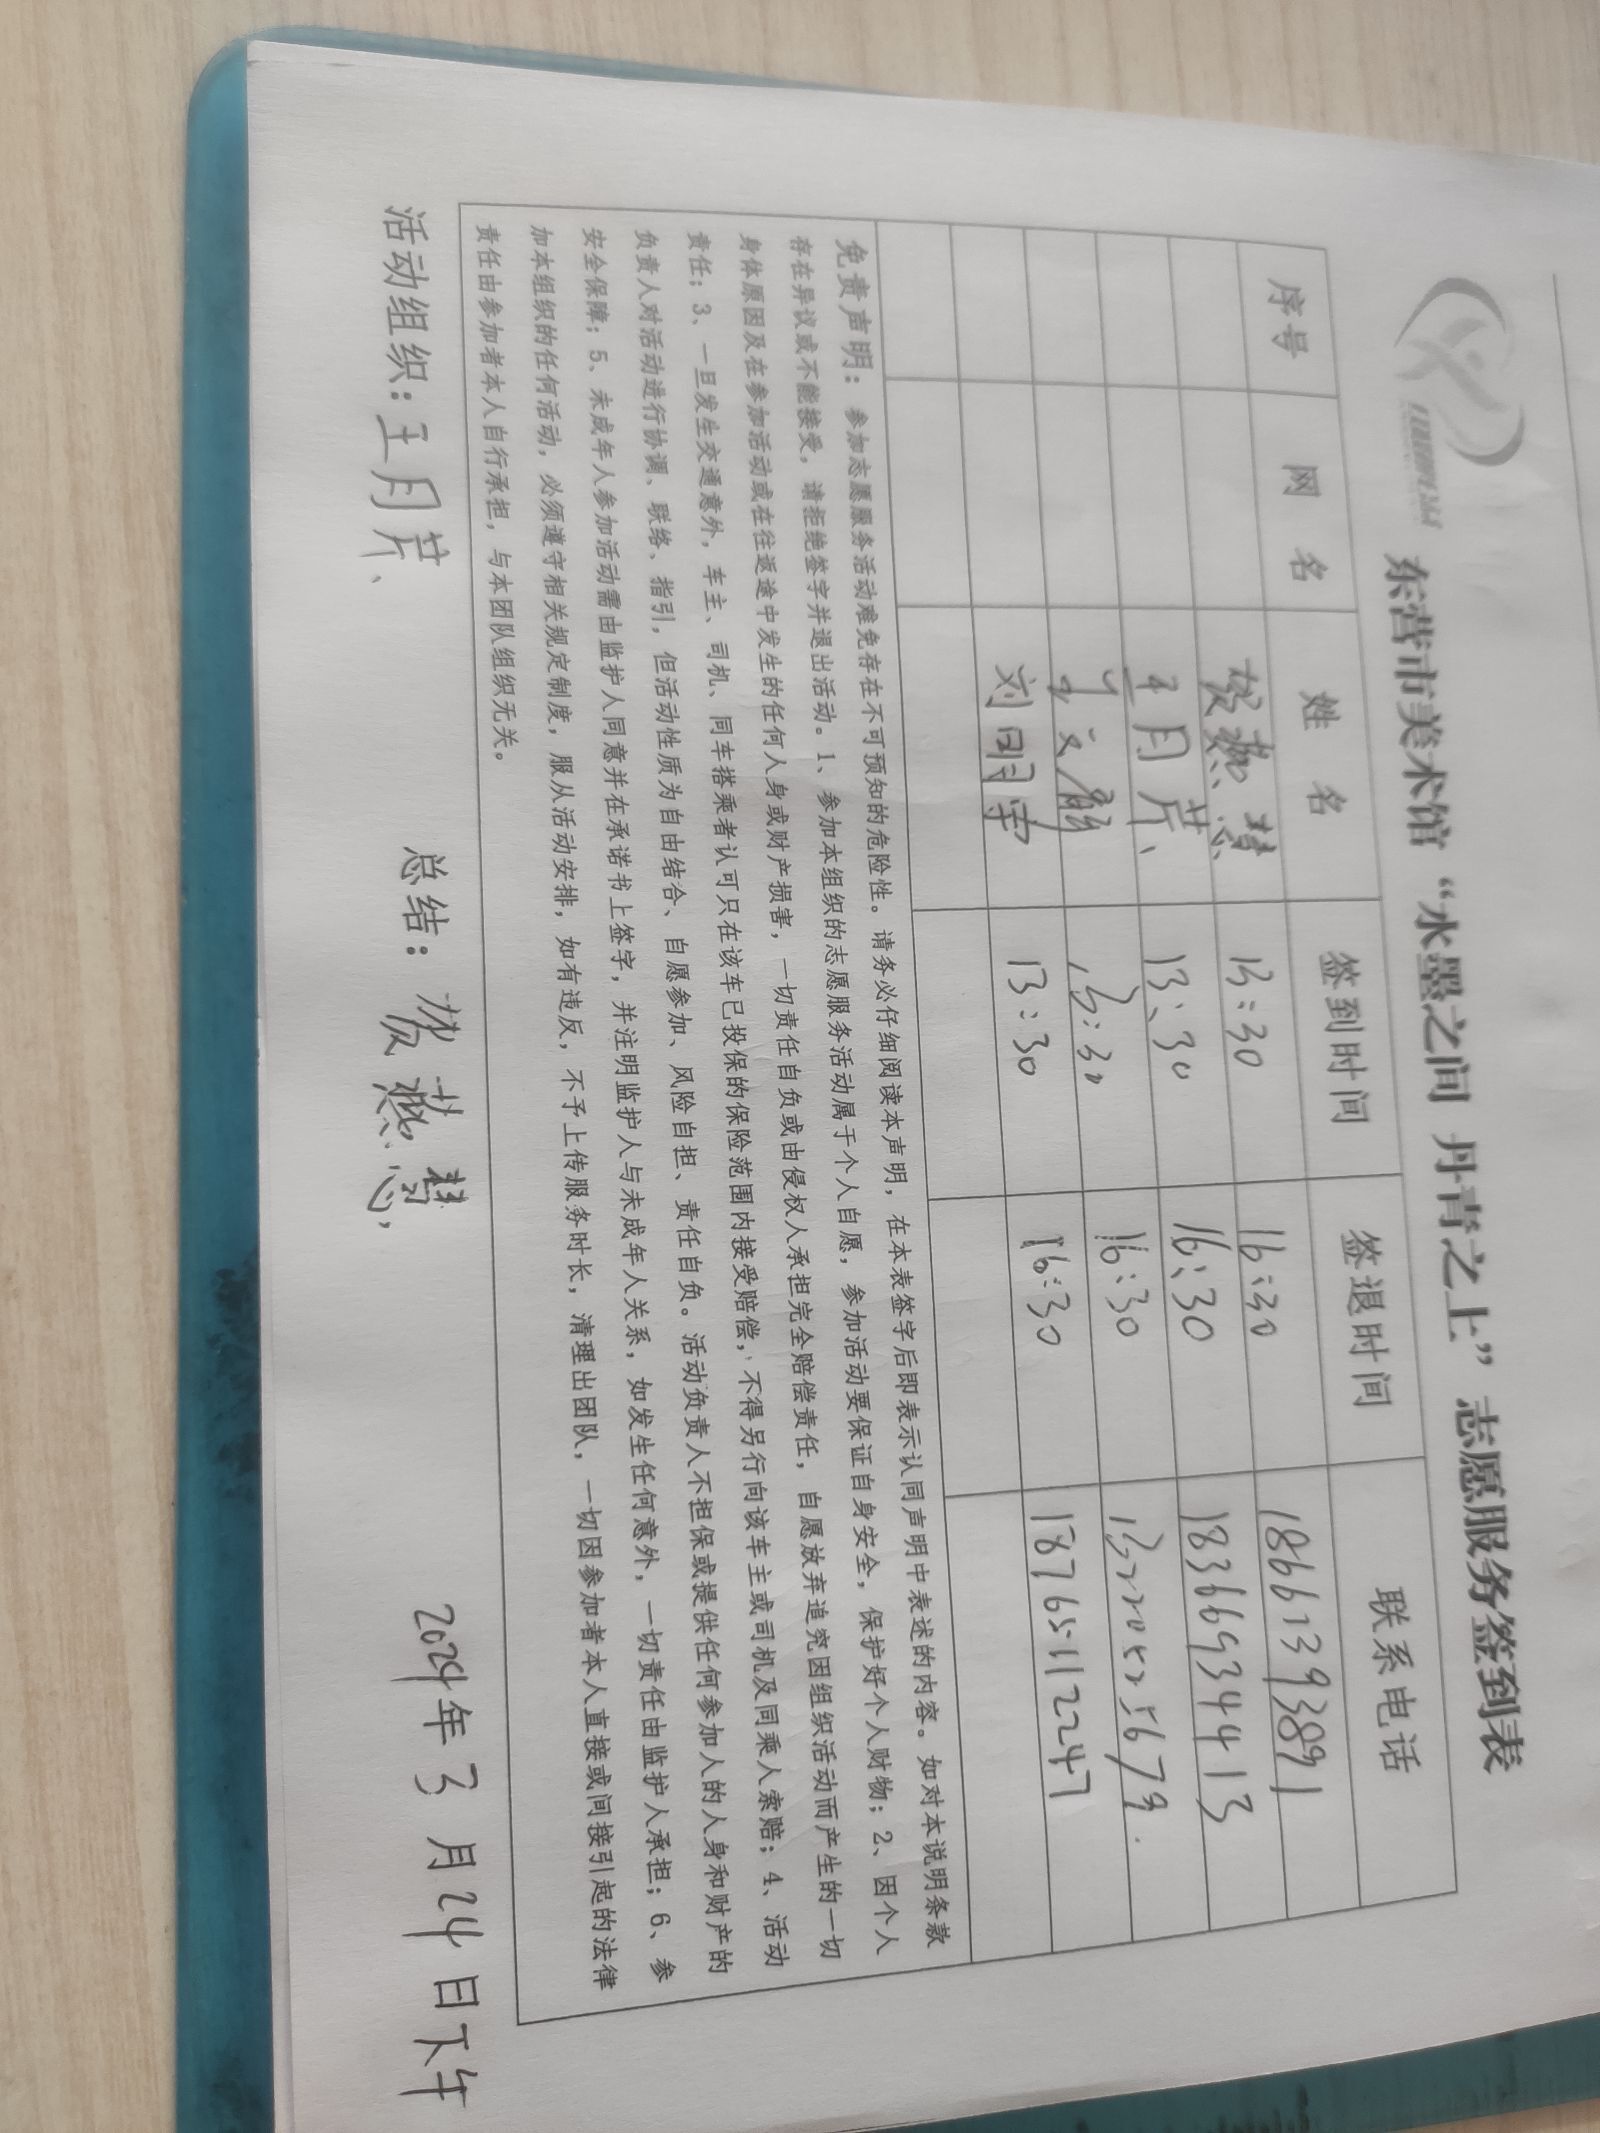 东营市美术馆“水墨之间 丹青之上”志愿服务签到表
序号 网 名 姓 名 签到时间 签退时间 联系电话
燕慧 13:30 16:30 18661393891
王月芹 13:30 16:30 18366934413
13:30 16:30
刘明军 13:30 16:30 18765112247
免责声明：参加志愿服务活动难免存在不可预知的危险性。请务必仔细阅读本声明，在本表签字后即表示认同声明中表述的内容。如对本说明条款
存在异议或不能接受，请拒绝签字并退出活动。1、参加本组织的志愿服务活动属于个人自愿，参加活动要保证自身安全，保护好个人财物；2、因个人
身体原因及在参加活动或在往返途中发生的任何人身或财产损害，一切责任自负或由侵权人承担完全赔偿责任，自愿放弃追究因组织活动而产生的一切
责任；3、一旦发生交通意外，车主、司机、同车搭乘者认可只在该车已投保的保险范围内接受赔偿，不得另行向该车主或司机及同乘人索赔；4、活动
负责人对活动进行协调、联络、指引，但活动性质为自由结洽、自愿参加、风险自担、责任自负。活动负责人不担保或提供任何参加人的人身和财产的
安全保障；5、未成年人参加活动需由监护人同意并在承诺书上签字，并注明监护人与未成年人关系，如发生任何意外，一切责任由监护人承担；6、参
加本组织的任何活动，必须遵守相关规定制度，服从活动安排，如有违反，不予上传服务时长，清理出团队，一切因参加者本人直接或间接引起的法律
责任由参加者本人自行承担，与本团队组织无关。
活动组织：王月芹 总结：燕慧 2024年3月24日下午